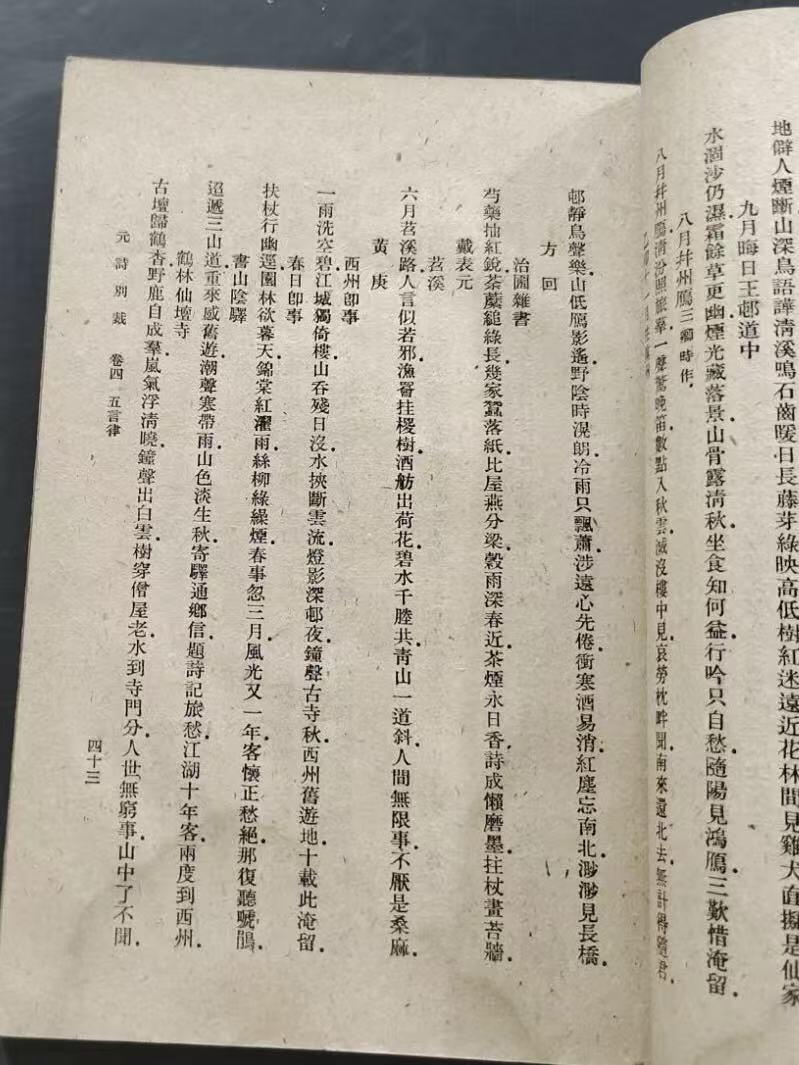 地僻人煙斷山深鳥語譁清溪鳴石齒暖日長藤芽綠映高低樹紅迷遠近花林間見雞犬直擬是仙家
九月晦日王邨道中
水涸沙仍濕霜餘草更幽煙光藏落景山骨露清秋坐食知何益行吟只自愁隨陽見鴻鴈三歎惜淹留
八月幷州鴈三鄉時作
八月幷州鴈清汾照旅羣一聲驚晚笛數點入秋雲滅沒樓中見哀勞枕畔聞南來還北去無計得隨君
邨靜鳥聲樂山低鴈影遙野陰時滉朗冷雨只飄蕭涉遠心先倦衝寒酒易消紅塵忘南北渺渺見長橋
方回
治圃雜書
芍藥抽紅銳荼蘼縋綠長幾家蠶落紙比屋燕分梁穀雨深春近茶煙永日香詩成懶磨墨拄杖畫苔牆
戴表元
苕溪
六月苕溪路人言似若邪漁罾挂椶樹酒舫出荷花碧水千塍共青山一道斜人間無限事不厭是桑麻
黃庚
西州卽事
一雨洗空碧江城獨倚樓山吞殘日沒水挾斷雲流燈影深邨夜鐘聲古寺秋西州舊遊地十載此淹留
春日卽事
扶杖行幽逕園林欲暮天錦棠紅濯雨絲柳綠繰煙春事忽三月風光又一年客懷正愁絕那復聽號鵑
書山陰驛
迢遞三山道重來感舊遊潮聲寒帶雨山色淡生秋寄驛通鄉信題詩記旅愁江湖十年客兩度到西州
鶴林仙壇寺
古壇歸鶴杳野鹿自成羣嵐氣浮清曉鐘聲出白雲樹穿僧屋老水到寺門分人世無窮事山中了不聞
元詩別裁 卷四 五言律
四十三